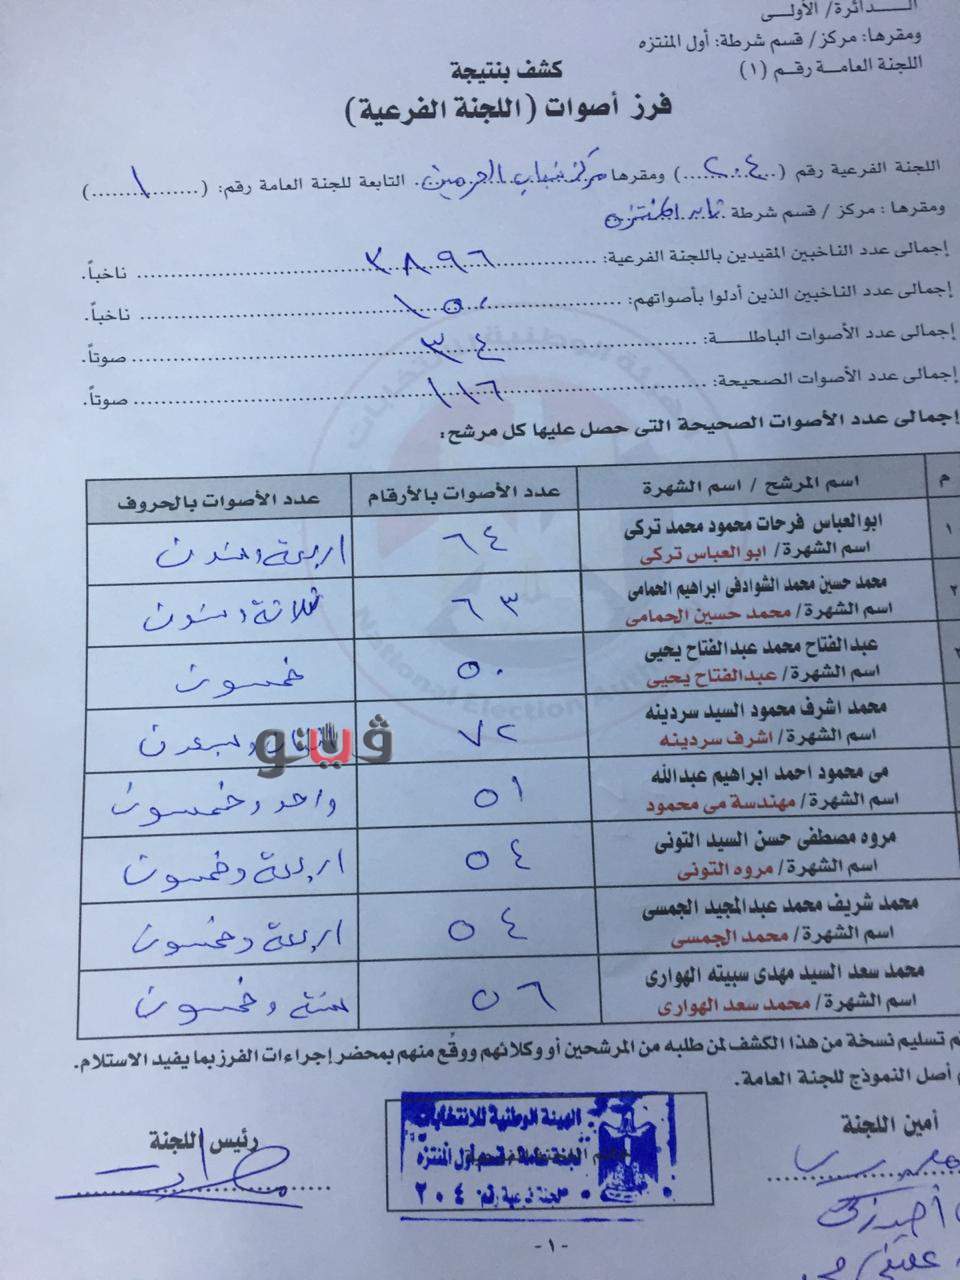 الــدائرة/ الأولى
ومقرها: مركز/ قسم شرطة: أول المنتزه
اللجنة العامــة رقــم (١)
كشف بنتيجة
فرز أصوات (اللجنة الفرعية)
اللجنة الفرعية رقم (..٢٠٤..) ومقرها مركز شباب الحرمين. التابعة للجنة العامة رقم: (....١....)
ومقرها: مركز / قسم شرطة المنتزه
إجمالى عدد الناخبين المقيدين باللجنة الفرعية: ٣٨٩٦ ناخباً.
إجمالى عدد الناخبين الذين أدلوا بأصواتهم: ١٥٠ ناخباً.
إجمالى عدد الأصوات الباطلــــة: ٣٤ صوتاً.
إجمالى عدد الأصوات الصحيحة: ١١٦ صوتاً.
إجمالى عدد الأصوات الصحيحة التى حصل عليها كل مرشح:
م اسم المرشح / اسم الشهرة عدد الأصوات بالأرقام عدد الأصوات بالحروف
١ ابوالعباس فرحات محمود محمد تركى ٦٤ اربعة وستون
اسم الشهرة/ ابو العباس تركى
٢ محمد حسين محمد الشوادفى ابراهيم الحمامى ٦٣ ثلاثة وستون
اسم الشهرة/ محمد حسين الحمامى
٣ عبدالفتاح محمد عبدالفتاح يحيى ٥٠ خمسون
اسم الشهرة/ عبدالفتاح يحيى
محمد اشرف محمود السيد سردينه ٧٢ وسبعون
اسم الشهرة/ اشرف سردينه
ڤيتو
مى محمود احمد ابراهيم عبدالله ٥١ واحد وخمسون
اسم الشهرة/ مهندسة مى محمود
مروه مصطفى حسن السيد التونى ٥٤ اربعة وخمسون
اسم الشهرة/ مروه التونى
محمد شريف محمد عبدالمجيد الجمسى ٥٤ اربعة وخمسون
اسم الشهرة/ محمد الجمسى
محمد سعد السيد مهدى سبيته الهوارى ٥٦ ستة وخمسون
اسم الشهرة/ محمد سعد الهوارى
تم تسليم نسخة من هذا الكشف لمن طلبه من المرشحين أو وكلائهم ووقّع منهم بمحضر إجراءات الفرز بما يفيد الاستلام.
أصل النموذج للجنة العامة.
أمين اللجنة
رئيس اللجنة
الهيئة الوطنية للانتخابات
لجنة عامة قسم أول المنتزه
لجنة فرعية رقم ٢٠٤
National Election Authority
-١-